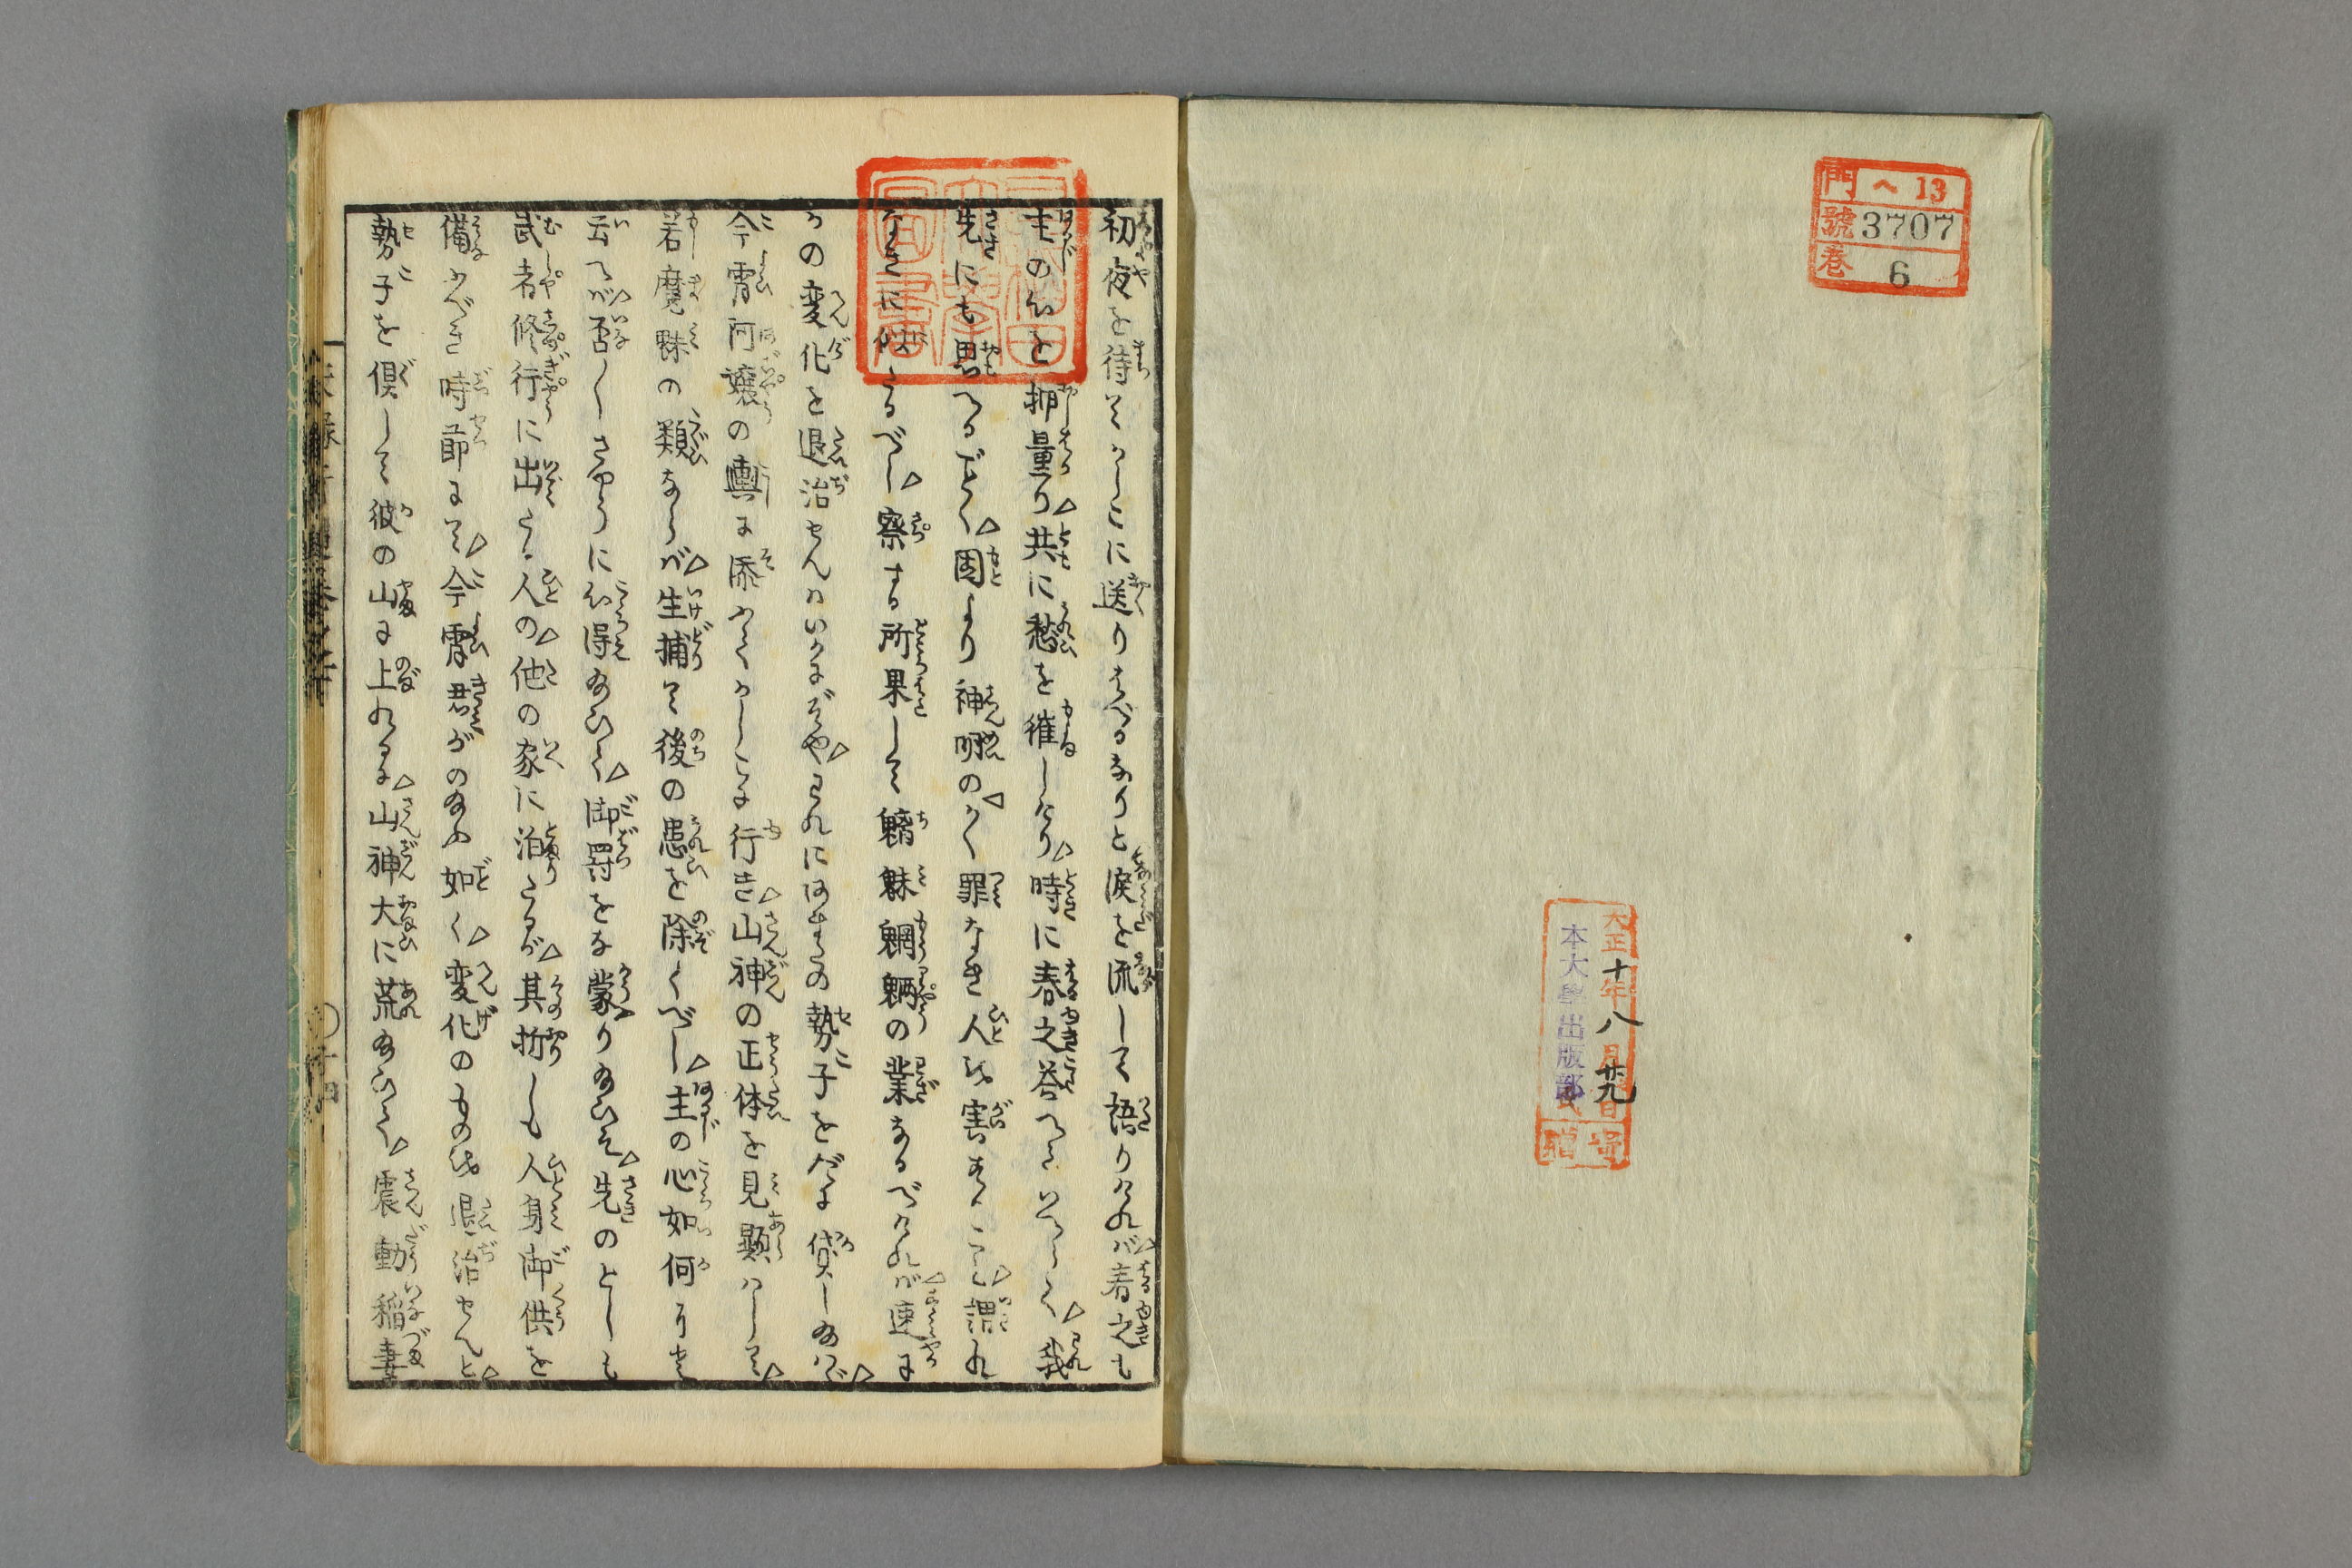 門 ヘ 13
號 3707
巻 6
大正十年八月廿九日
本大學出版部氏
寄贈
初夜を待てかしこに送りはべるなりと涙を流して語りければ春之も
主の心を押量り共に愁を催しけり時に春之答へていへらく我
先にも思へるごとく固より神明のかく罪なき人を害すること謂れ
なきに似たるべし察する所果して魑魅魍魎の業なるべければ速に
かの変化を退治せんはいかにぞやわれにあまたの勢子をだに貸し給はゞ
今宵阿嬢の輿に添ふてかしこに行き山神の正体を見顕はして
若魔魅の類ならば生捕て後の患を除くべし主の心如何りと
云へば否〱さやうに心得給ひて御罸をな蒙り給ひそ先のとしも
武者修行に出たる人の他の家に泊たるが其折しも人身御供を
備ふべき時節にて今宵君がのたまふ如く変化のものを退治せんと
勢子を倶して彼の山に上れるに山神大に荒給ひて震動稲妻